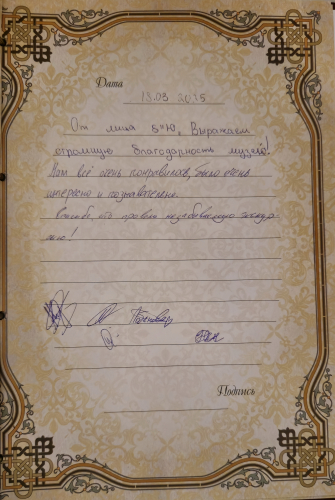 Дата
18.03 2025
От лица 5"Ю", Выражаем
огромную благодарность музею!
Нам всё очень понравилось, было очень
интересно и познавательно.
Спасибо, что провели незабываемую экскур-
сию!
Подпись